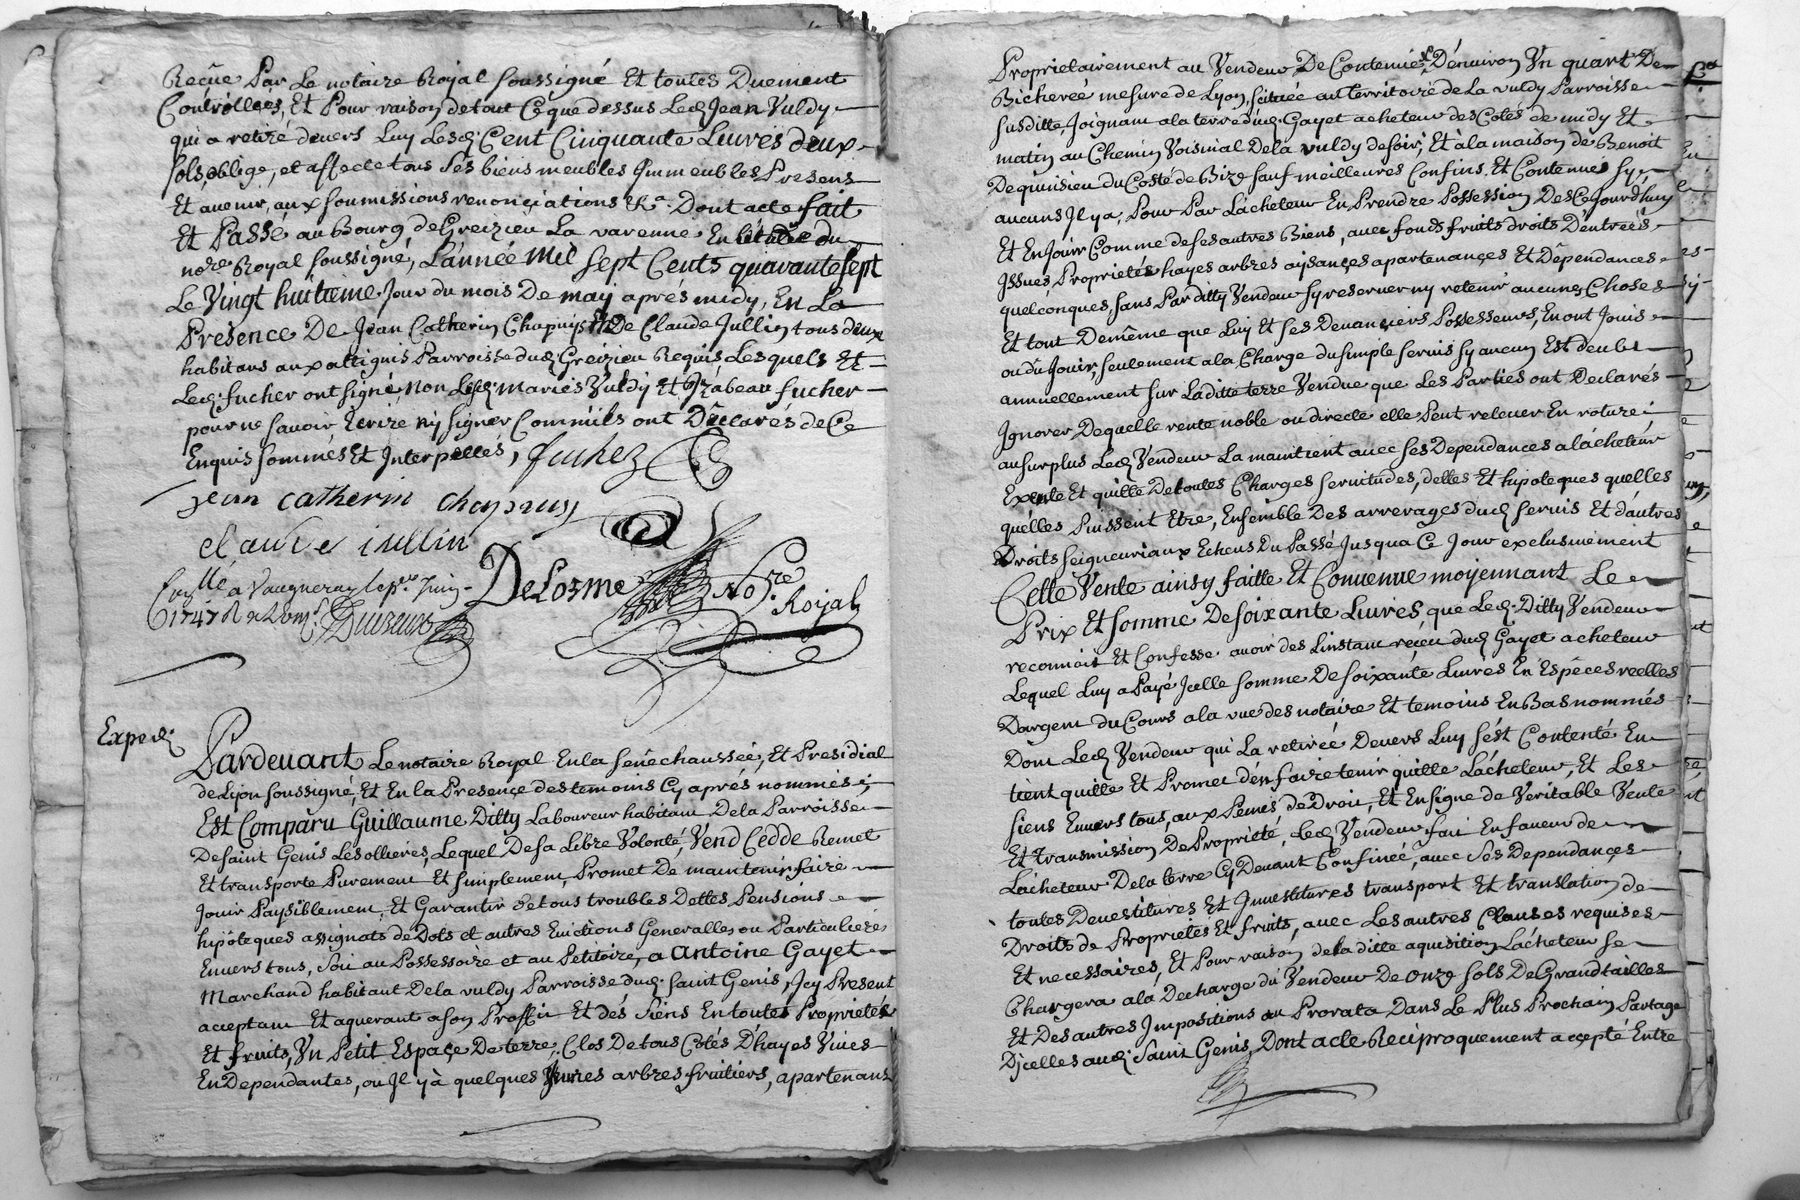 Reçüe Par Le notaire Royal soussigné Et toutes Duement
Contrôllées, Et Pour raison de tout Ce que dessus Led. Jean Vuldy
qui a retiré devers Luy Lesd. Cent Cinquante Livres deux
sols, oblige, et affecte tous ses biens meubles Immeubles Presens
Et avenir, aux soumissions renonciations &a. Dont acte fait
Et Passé au Bourg de Greizieu La varenne En L'étude du
nore. Royal soussigné, L'année Mil sept Cents quarante sept
Le Vingt huitieme Jour du mois De may aprés midy, En La
Presence De Jean Catherin Chapuys Et De Claude Jullin tous deux
habitans aux attignis Parroisse dud. Greizieu Requis Lesquels Et
Led. fucher ont signé, Non Lesd. mariés Vuldy et Izabeau fucher
pour ne savoir Ecrire ny signer Comm'ils ont Déclarés de Ce
Enquis sommés Et Interpellés, fucher
jean catherin chapuys
claude iullin
Conllé a Vaugneray le per. Juin
1747 R
DeLorme Nore. Royal
Exped.
Pardevant Le notaire Royal En la senéchaussée, Et Presidial
de Lyon soussigné, Et En la Presence des temoins Cy aprés nommés;
Est Comparu Guillaume Ditty Laboureur habitant De la Parroisse
De saint Genis Les ollieres, Lequel De sa Libre Volonté, Vend Cedde Remet
Et transporte Purement Et simplement, Promet De maintenir faire
Jouir Paysiblement, Et Garantir de tous troubles Dettes Pensions
hipôteques assignats de Dots et autres Evictions Generalles ou Particulieres
Envers tous, soit au Possessoire et au Petitoire, a Antoine Gayet
Marchand habitant De la vuldy Parroisse dud. saint Genis, Icy Present
acceptant Et aquerant a son Proffit Et dés siens En toutes Propriétés
Et fruits, Un Petit Espace De terre, Clos De tous Cotés D'hayes Vives
En Dependantes, ou Il y à quelques Jeunes arbres fruitiers, apartenant
Proprietairement au Vendeur De Contenüe D'énviron Un quart De
Bicherée mesure de Lyon, scituée au territoire de La vuldy Parroisse
susditte, Joignant a la terre dud. Gayet acheteur des Cotés de midy Et
matin au Chemin Voisinal De la vuldy de soir, Et à la maison de Benoit
Dequinsieu du Costé de Bize sauf meilleures Confins, Et Contenues sy
aucuns Il y a, Pour Par L'acheteur En Prendre Possession Des Ce Jourd'huy
Et En Jouir Comme de ses autres Biens, avec fonds fruits droits D'entreés
Issues Proprietés hayes arbres aysançes apartenançes Et Dépendances
quelconques, sans Par ditty Vendeur sy reserver ny retenir aucunes Choses
Et tout De même que Luy Et ses Devanciers Possesseurs, En ont Joüis
ou dû Joüir, seulement a la Charge du simple servis sy aucun Est deubt
annuellement sur Laditte terre Vendue que Les Parties ont Declarés
Ignorer De quelle rente noble ou directe elle Peut relever En roture:
au surplus Led. Vendeur La maintient avec ses Dependances a L'acheteur
Exente Et quitte De toutes Charges servitudes, dettes Et hipoteques quelles
qu'elles Puissent Etre, Ensemble Des arrerages dud. servis Et d'autres
Droits seigneuriaux Echeus Du Passé Jusqua Ce Jour exclusivement
Cette Vente ainsy faitte Et Convenue moyennant Le
Prix Et somme De soixante Livres, que Led. Ditty Vendeur
reconnoit Et Confesse avoir des L'instant reçeu dud. Gayet acheteur
Lequel Luy a Payé Icelle somme De soixante Livres En Espéces reelles
D'argent du Cours a la vue des notaire Et temoins En Bas nommés
Dont Led. Vendeur qui La retirée Devers Luy s'est Contenté En
tient quitte Et Promet d'en faire tenir quitte L'acheteur, Et Les
siens Envers tous, aux Peines de Droit, Et En signe de Veritable Vente
Et transmission De Proprieté, Led. Vendeur fait En faveur de
L'acheteur De la terre Cy Devant Confinée, avec ses Dependançes
toutes Devestitures Et Investitures transport Et translation de
Droits de Proprietés Et fruits, avec Les autres Clauses requises
Et necessaires, Et Pour raison de la ditte aquisition L'acheteur se
Chargera a la Decharge du Vendeur De onze sols De Grand tailles
Et Des autres Impositions au Prorata Dans Le Plus Prochain Partage
D'icelles aud. Saint Genis, Dont acte Reciproquement accepté Entre